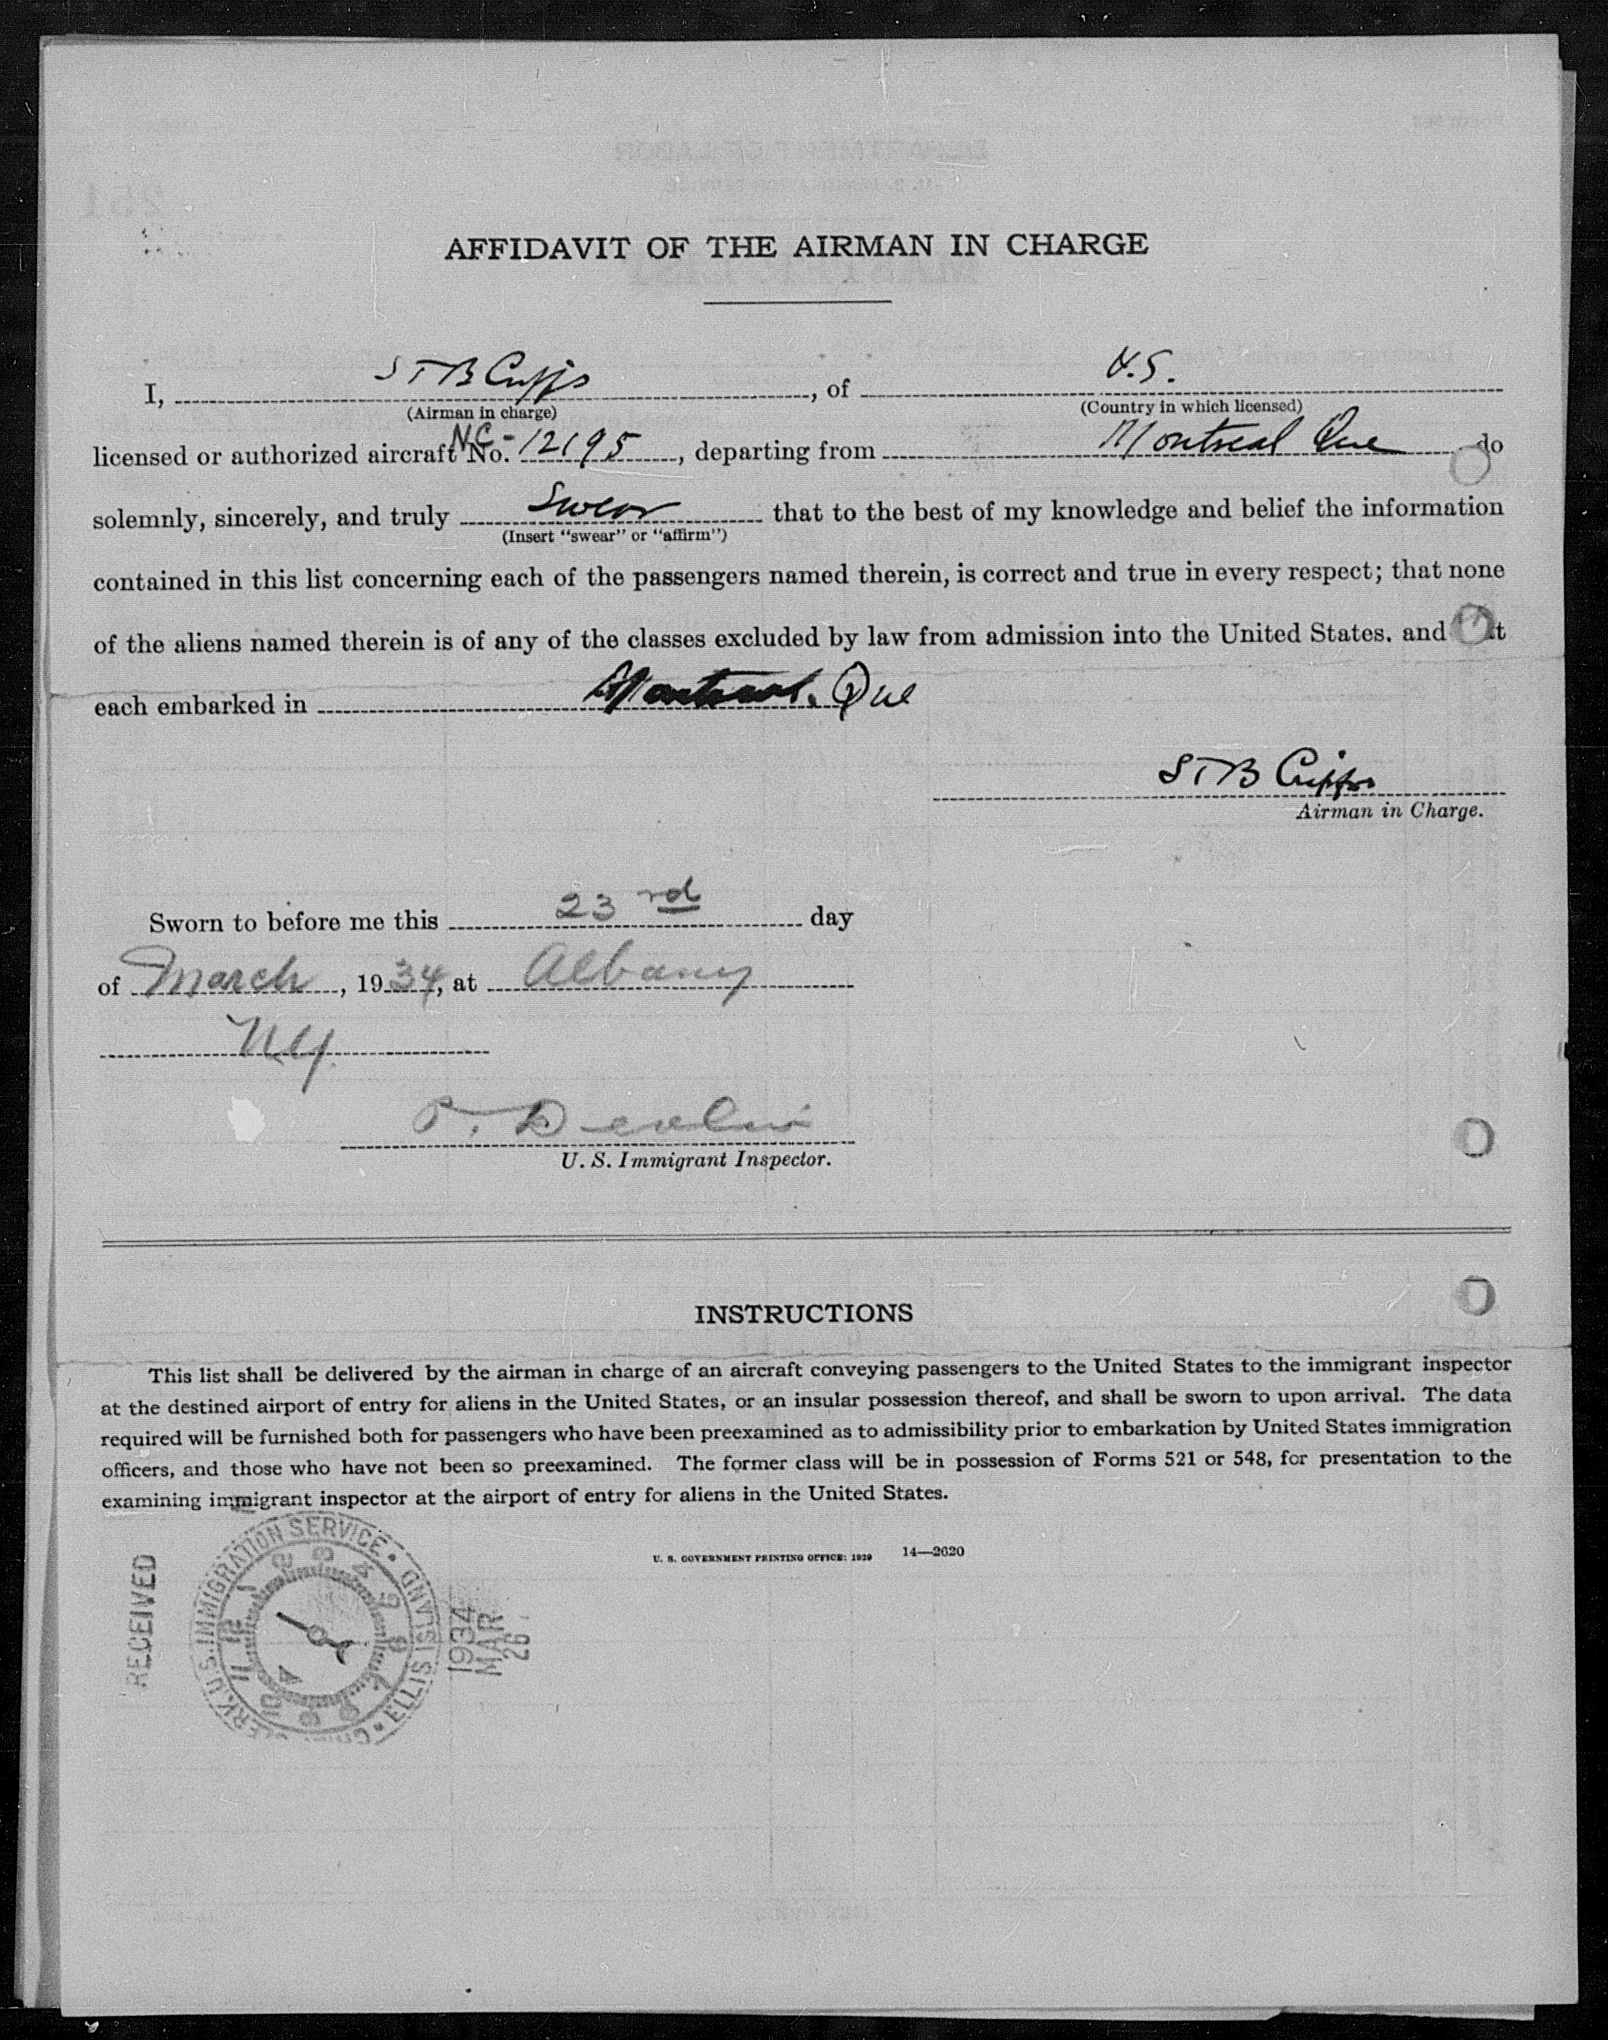 AFFIDAVIT OF THE AIRMAN IN CHARGE
I, S T B Cripps, of U.S.
(Airman in charge) (Country in which licensed)
licensed or authorized aircraft No. NC-12195, departing from Montreal Que do
solemnly, sincerely, and truly swear that to the best of my knowledge and belief the information
(Insert "swear" or "affirm")
contained in this list concerning each of the passengers named therein, is correct and true in every respect; that none
of the aliens named therein is of any of the classes excluded by law from admission into the United States. and
each embarked in Montreal. Que
S T B Cripps
Airman in Charge.
Sworn to before me this 23rd day
of March, 1934, at Albany
NY.
P. Devlin
U. S. Immigrant Inspector.
INSTRUCTIONS
This list shall be delivered by the airman in charge of an aircraft conveying passengers to the United States to the immigrant inspector
at the destined airport of entry for aliens in the United States, or an insular possession thereof, and shall be sworn to upon arrival. The data
required will be furnished both for passengers who have been preexamined as to admissibility prior to embarkation by United States immigration
officers, and those who have not been so preexamined. The former class will be in possession of Forms 521 or 548, for presentation to the
examining immigrant inspector at the airport of entry for aliens in the United States.
U. S. GOVERNMENT PRINTING OFFICE: 1929 14—2620
RECEIVED
U.S. IMMIGRATION SERVICE. ELLIS ISLAND
1934
MAR
26